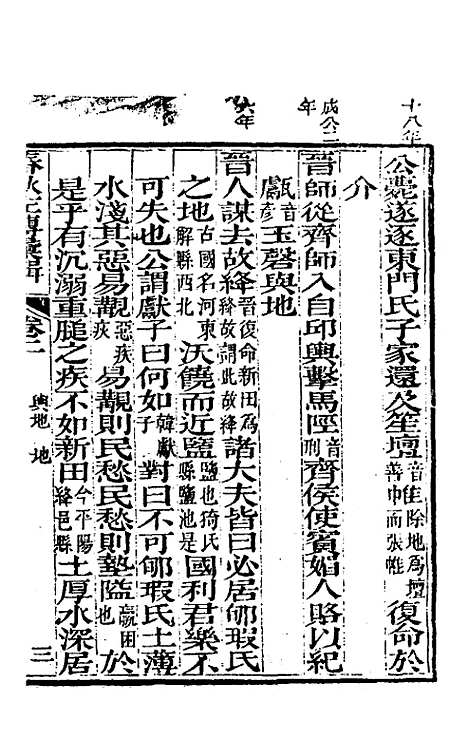 十八年
公薨遂逐東門氏子家還及笙壇音惟除地爲壇善申而張帷復命於
介
成公二年
晉師從齊師入自邱輿擊馬陘音刑齊侯使賓媚人賂以紀
甗音彥玉磬與地
六年
晉人謀去故絳晉復命新田爲絳故謂此故絳諸大夫皆曰必居郇瑕氏
之地古國名河東解縣西北沃饒而近鹽鹽也猗氏縣鹽池是國利君樂不
可失也公謂獻子曰何如韓獻子對曰不可郇瑕氏土薄
水淺其惡易覯惡疾疾易覯則民愁民愁則墊隘羸困也於
是乎有沉溺重膇之疾不如新田今平陽絳邑縣土厚水深居
春秋左傳彙輯
卷二
輿地 地
三